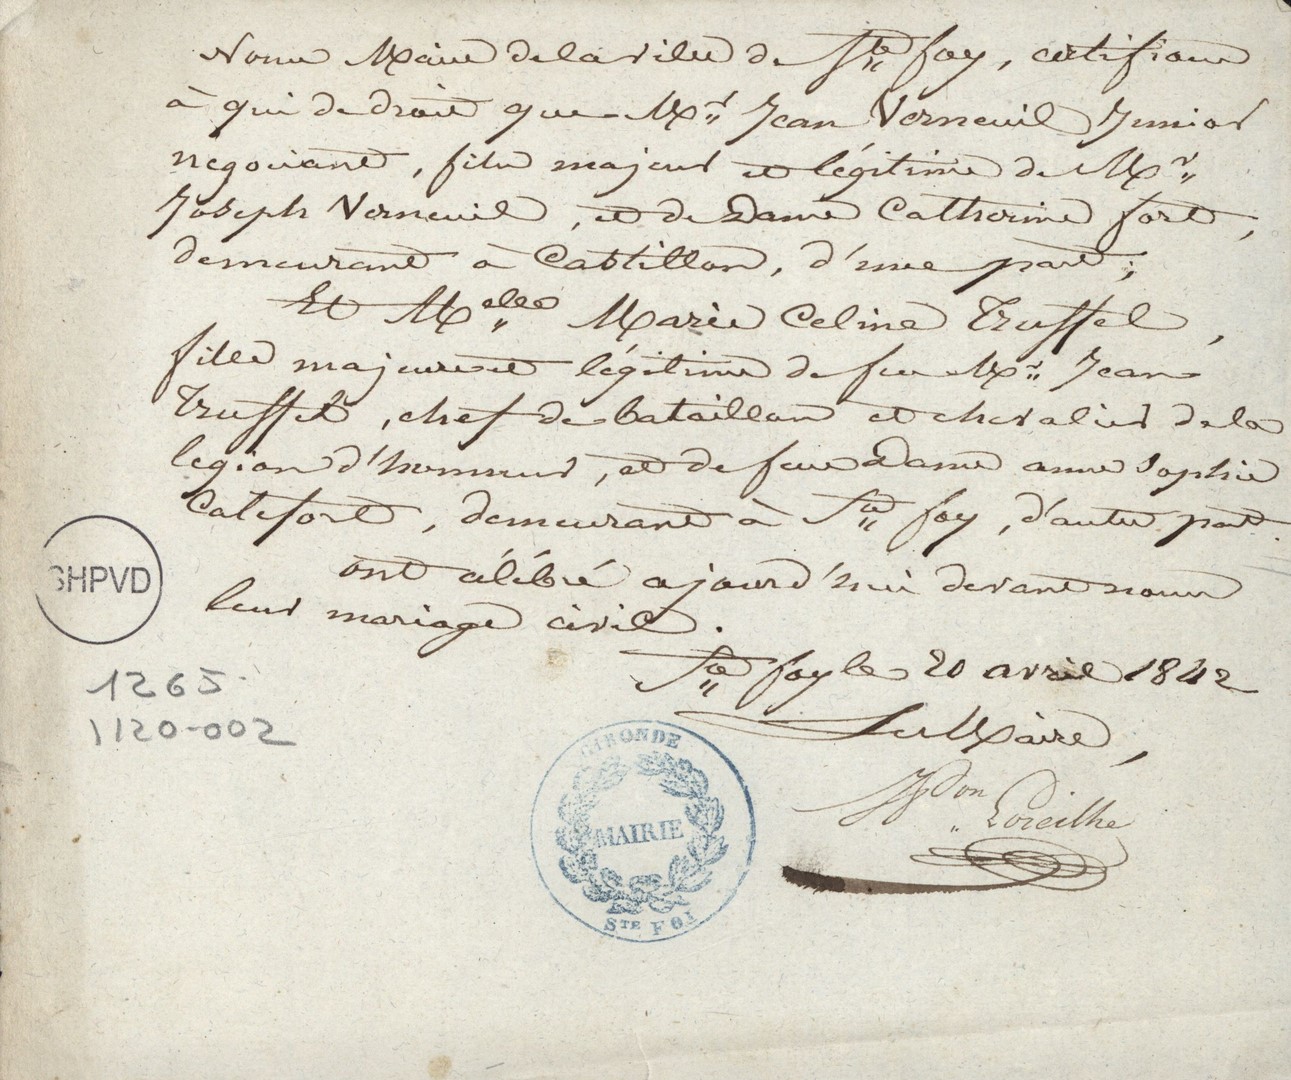 Nous Maire de la ville de Ste foy, certifions
à qui de droit que Mr Jean Verneuil Junior
négociant, fils majeur et légitime de Mr
Joseph Verneuil, et de Dame Catherine fort,
demeurant à Castillon, d'une part;
Et Melle Marie Celine Truffel,
fille majeure et légitime de feu Mr Jean
Truffel, chef de bataillon et chevalier de la
legion d'honneur, et de feue Dame anne Sophie
Calefort, demeurant à Ste foy, d'autre part.
ont célébré ajourd'hui devant nous
leur mariage civil.
Ste foy le 20 avril 1842
Le Maire,
Loreilhe
SHPVD
1265
1120-002
GIRONDE
MAIRIE
STE FOI